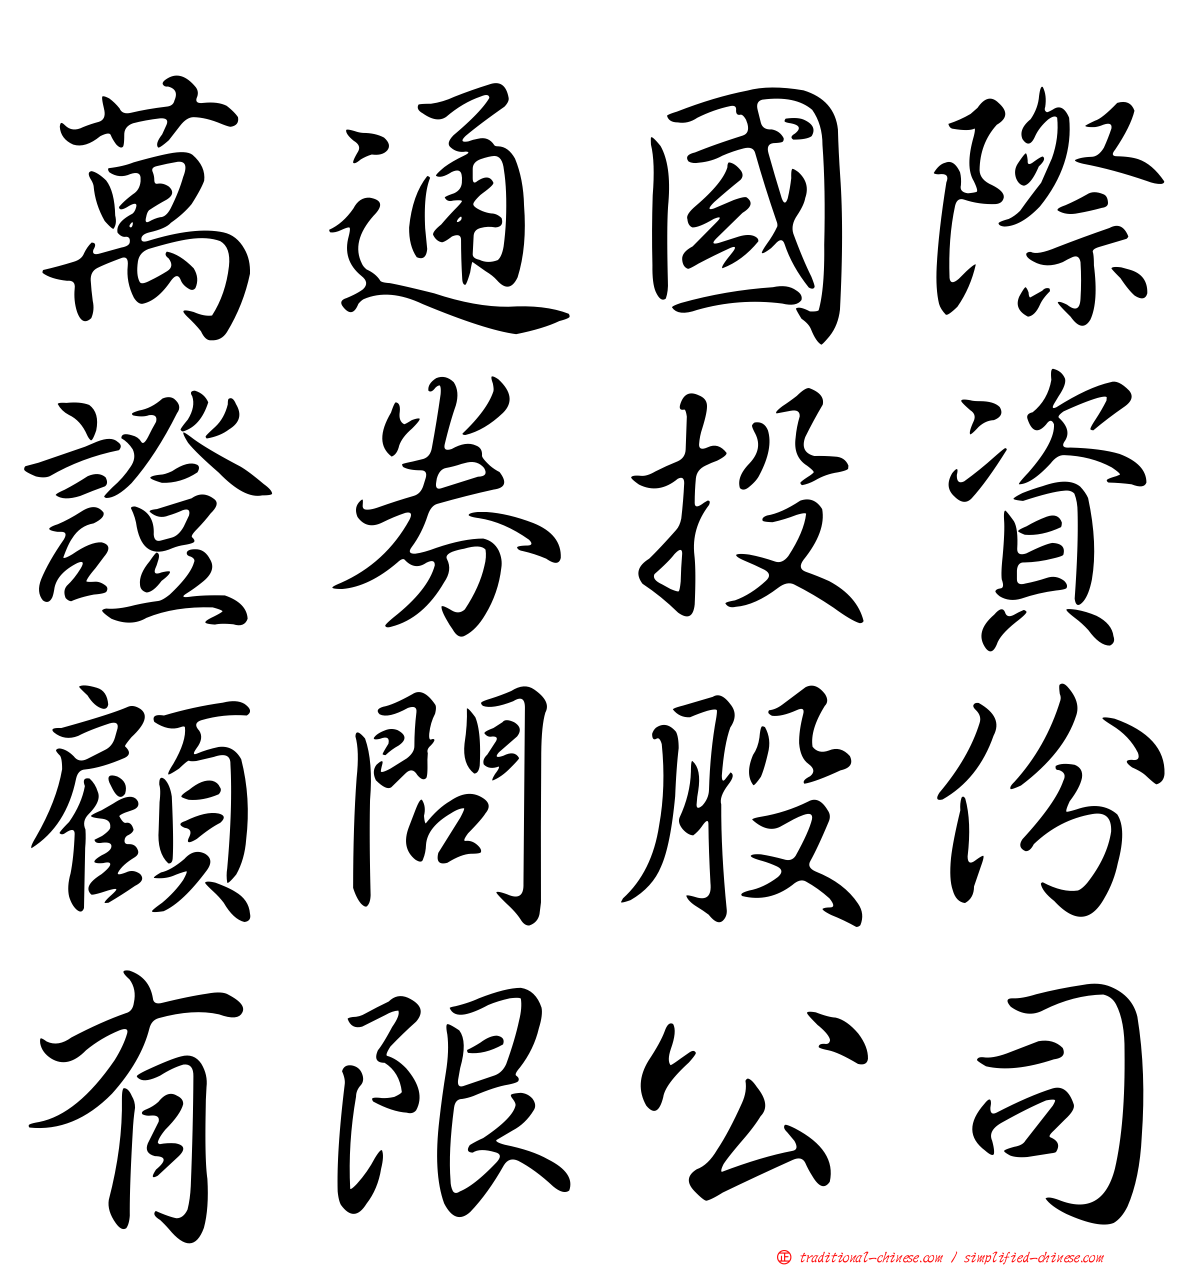 萬通國際
證券投資
顧問股份
有限公司
㊣ traditional-chinese.com / simplified-chinese.com